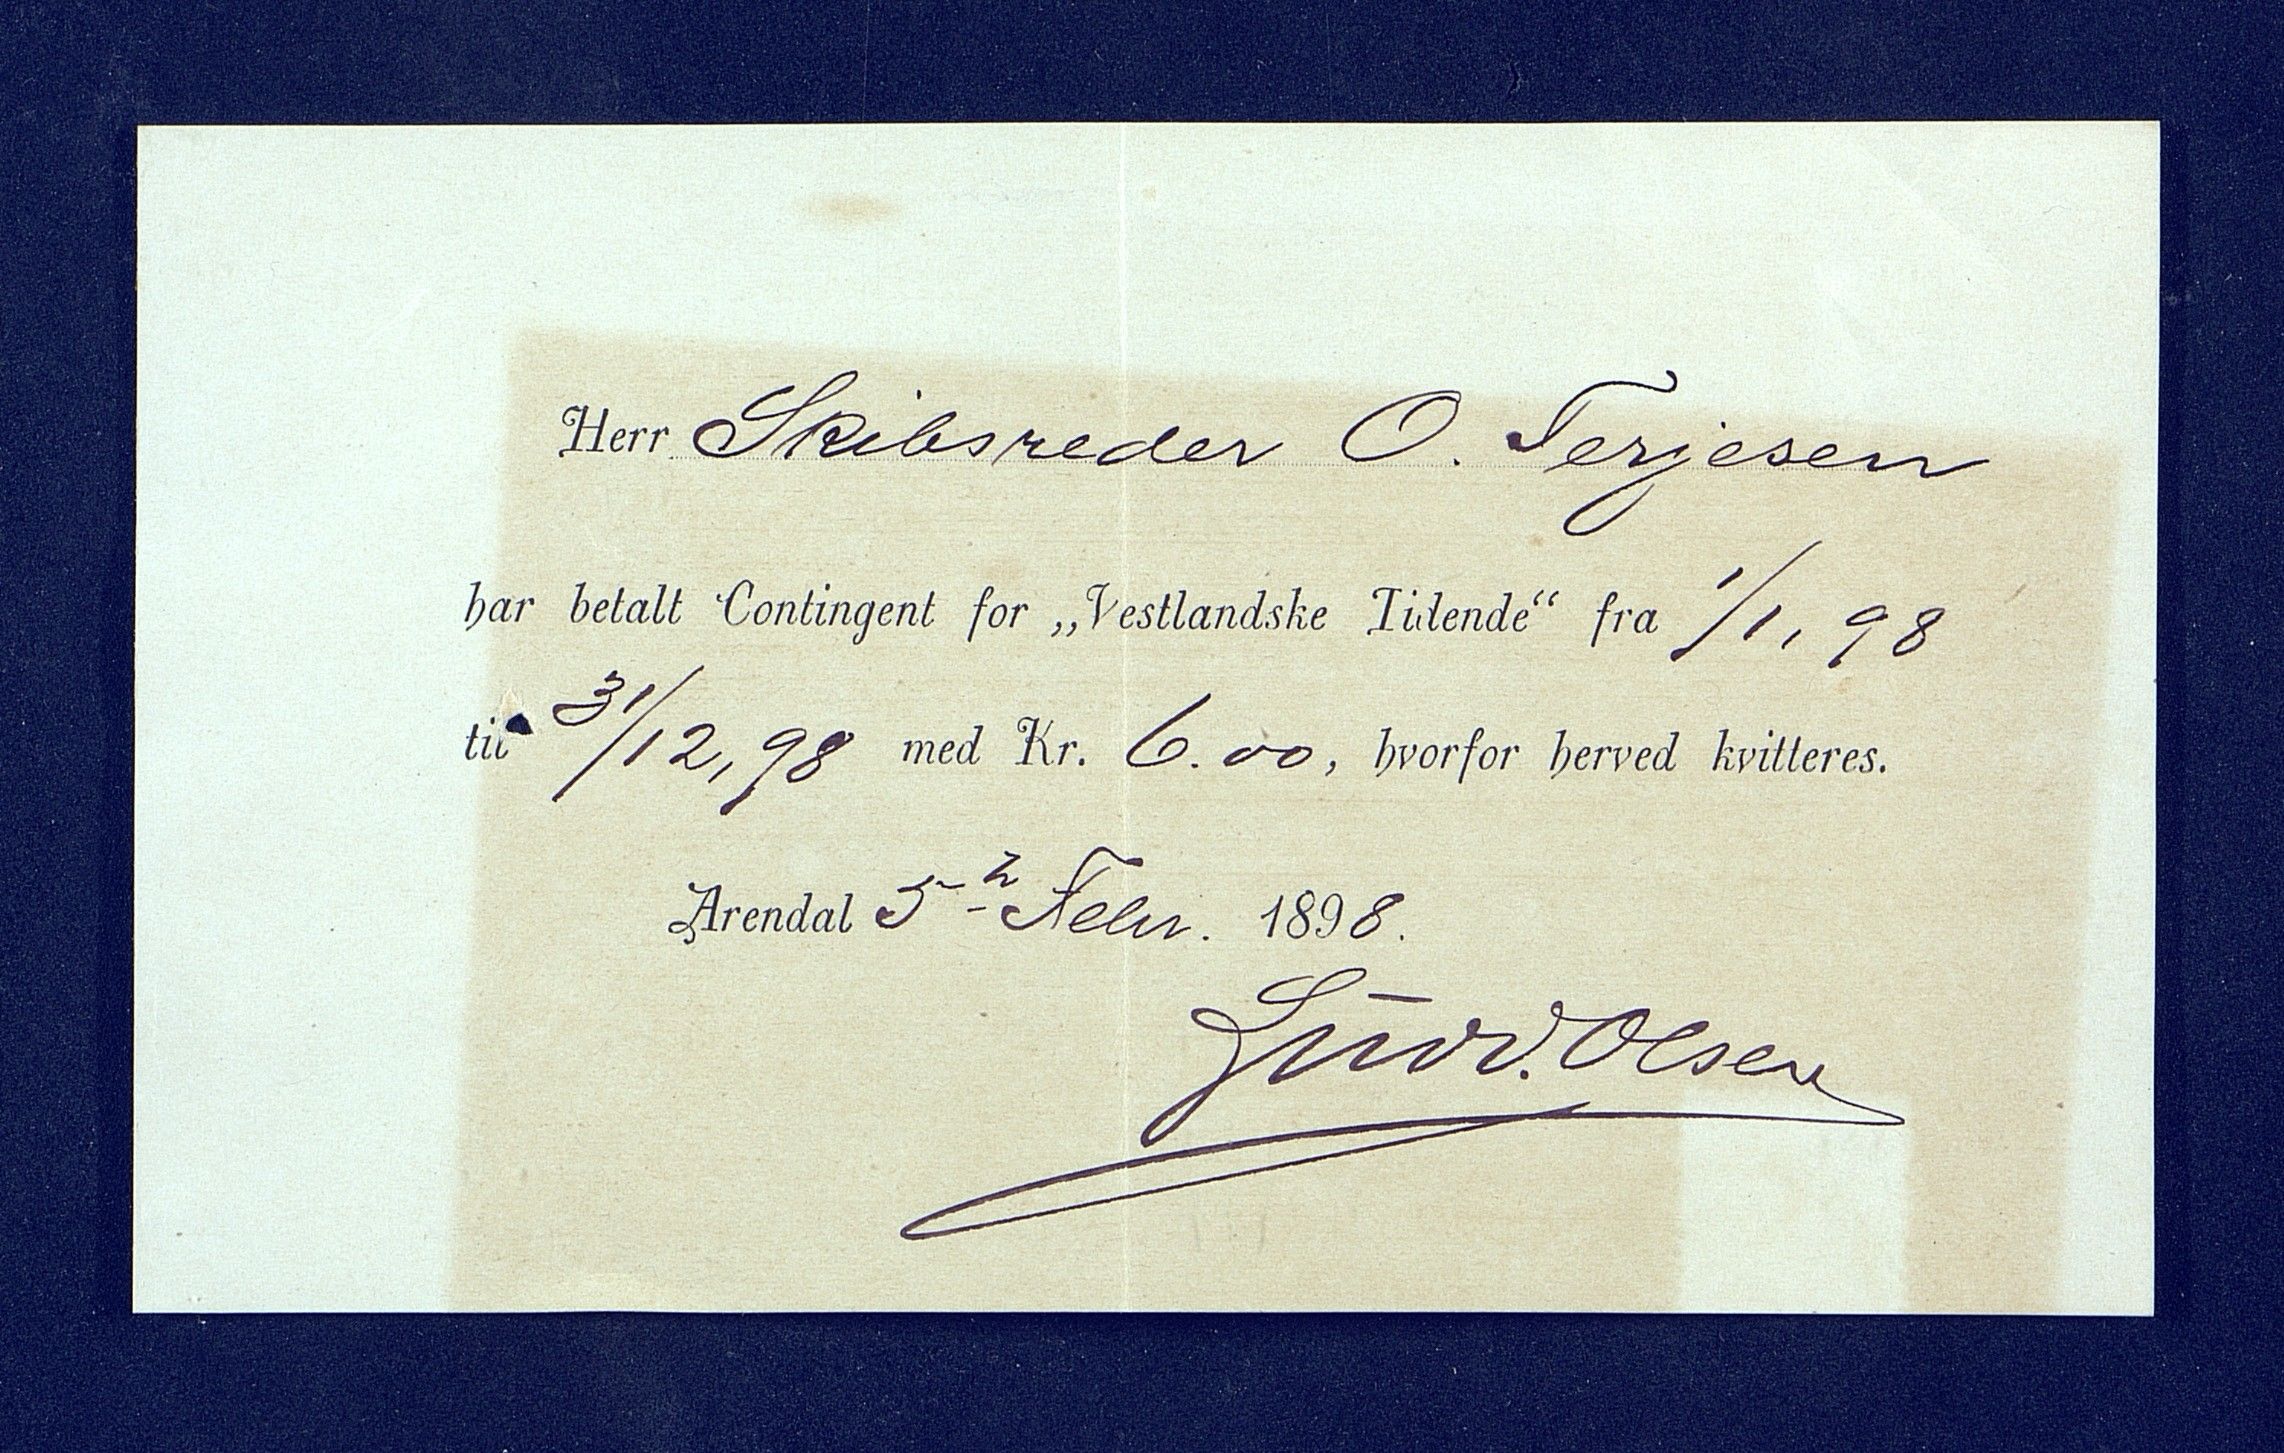 Herr Skibsreder O. Terjesen
har betalt Contingent for „Vestlandske Tidende“ fra 1/1, 98
til 31/12, 98 med Kr. 6.00, hvorfor herved kvitteres.
Arendal 5te Febr. 1898.
Ludv. Olsen